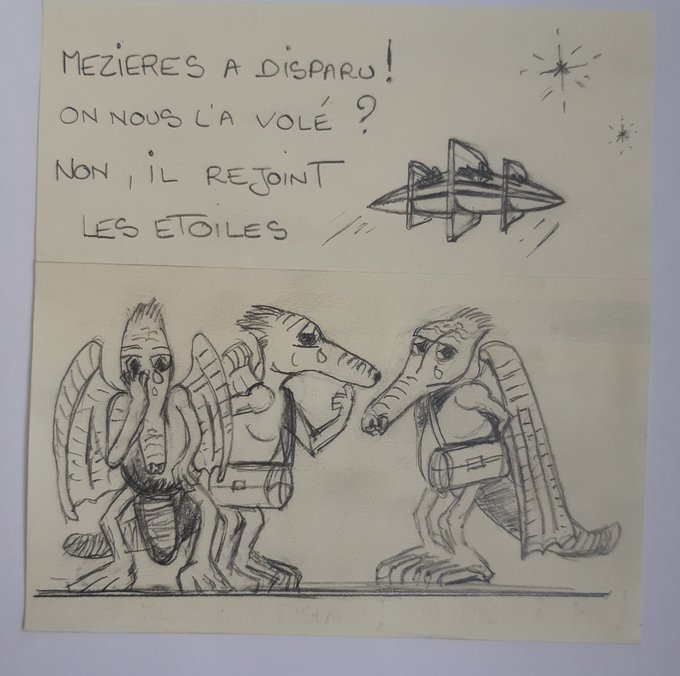 MEZIERES A DISPARU!
ON NOUS L'A VOLÉ ?
NON, IL REJOINT
LES ETOILES